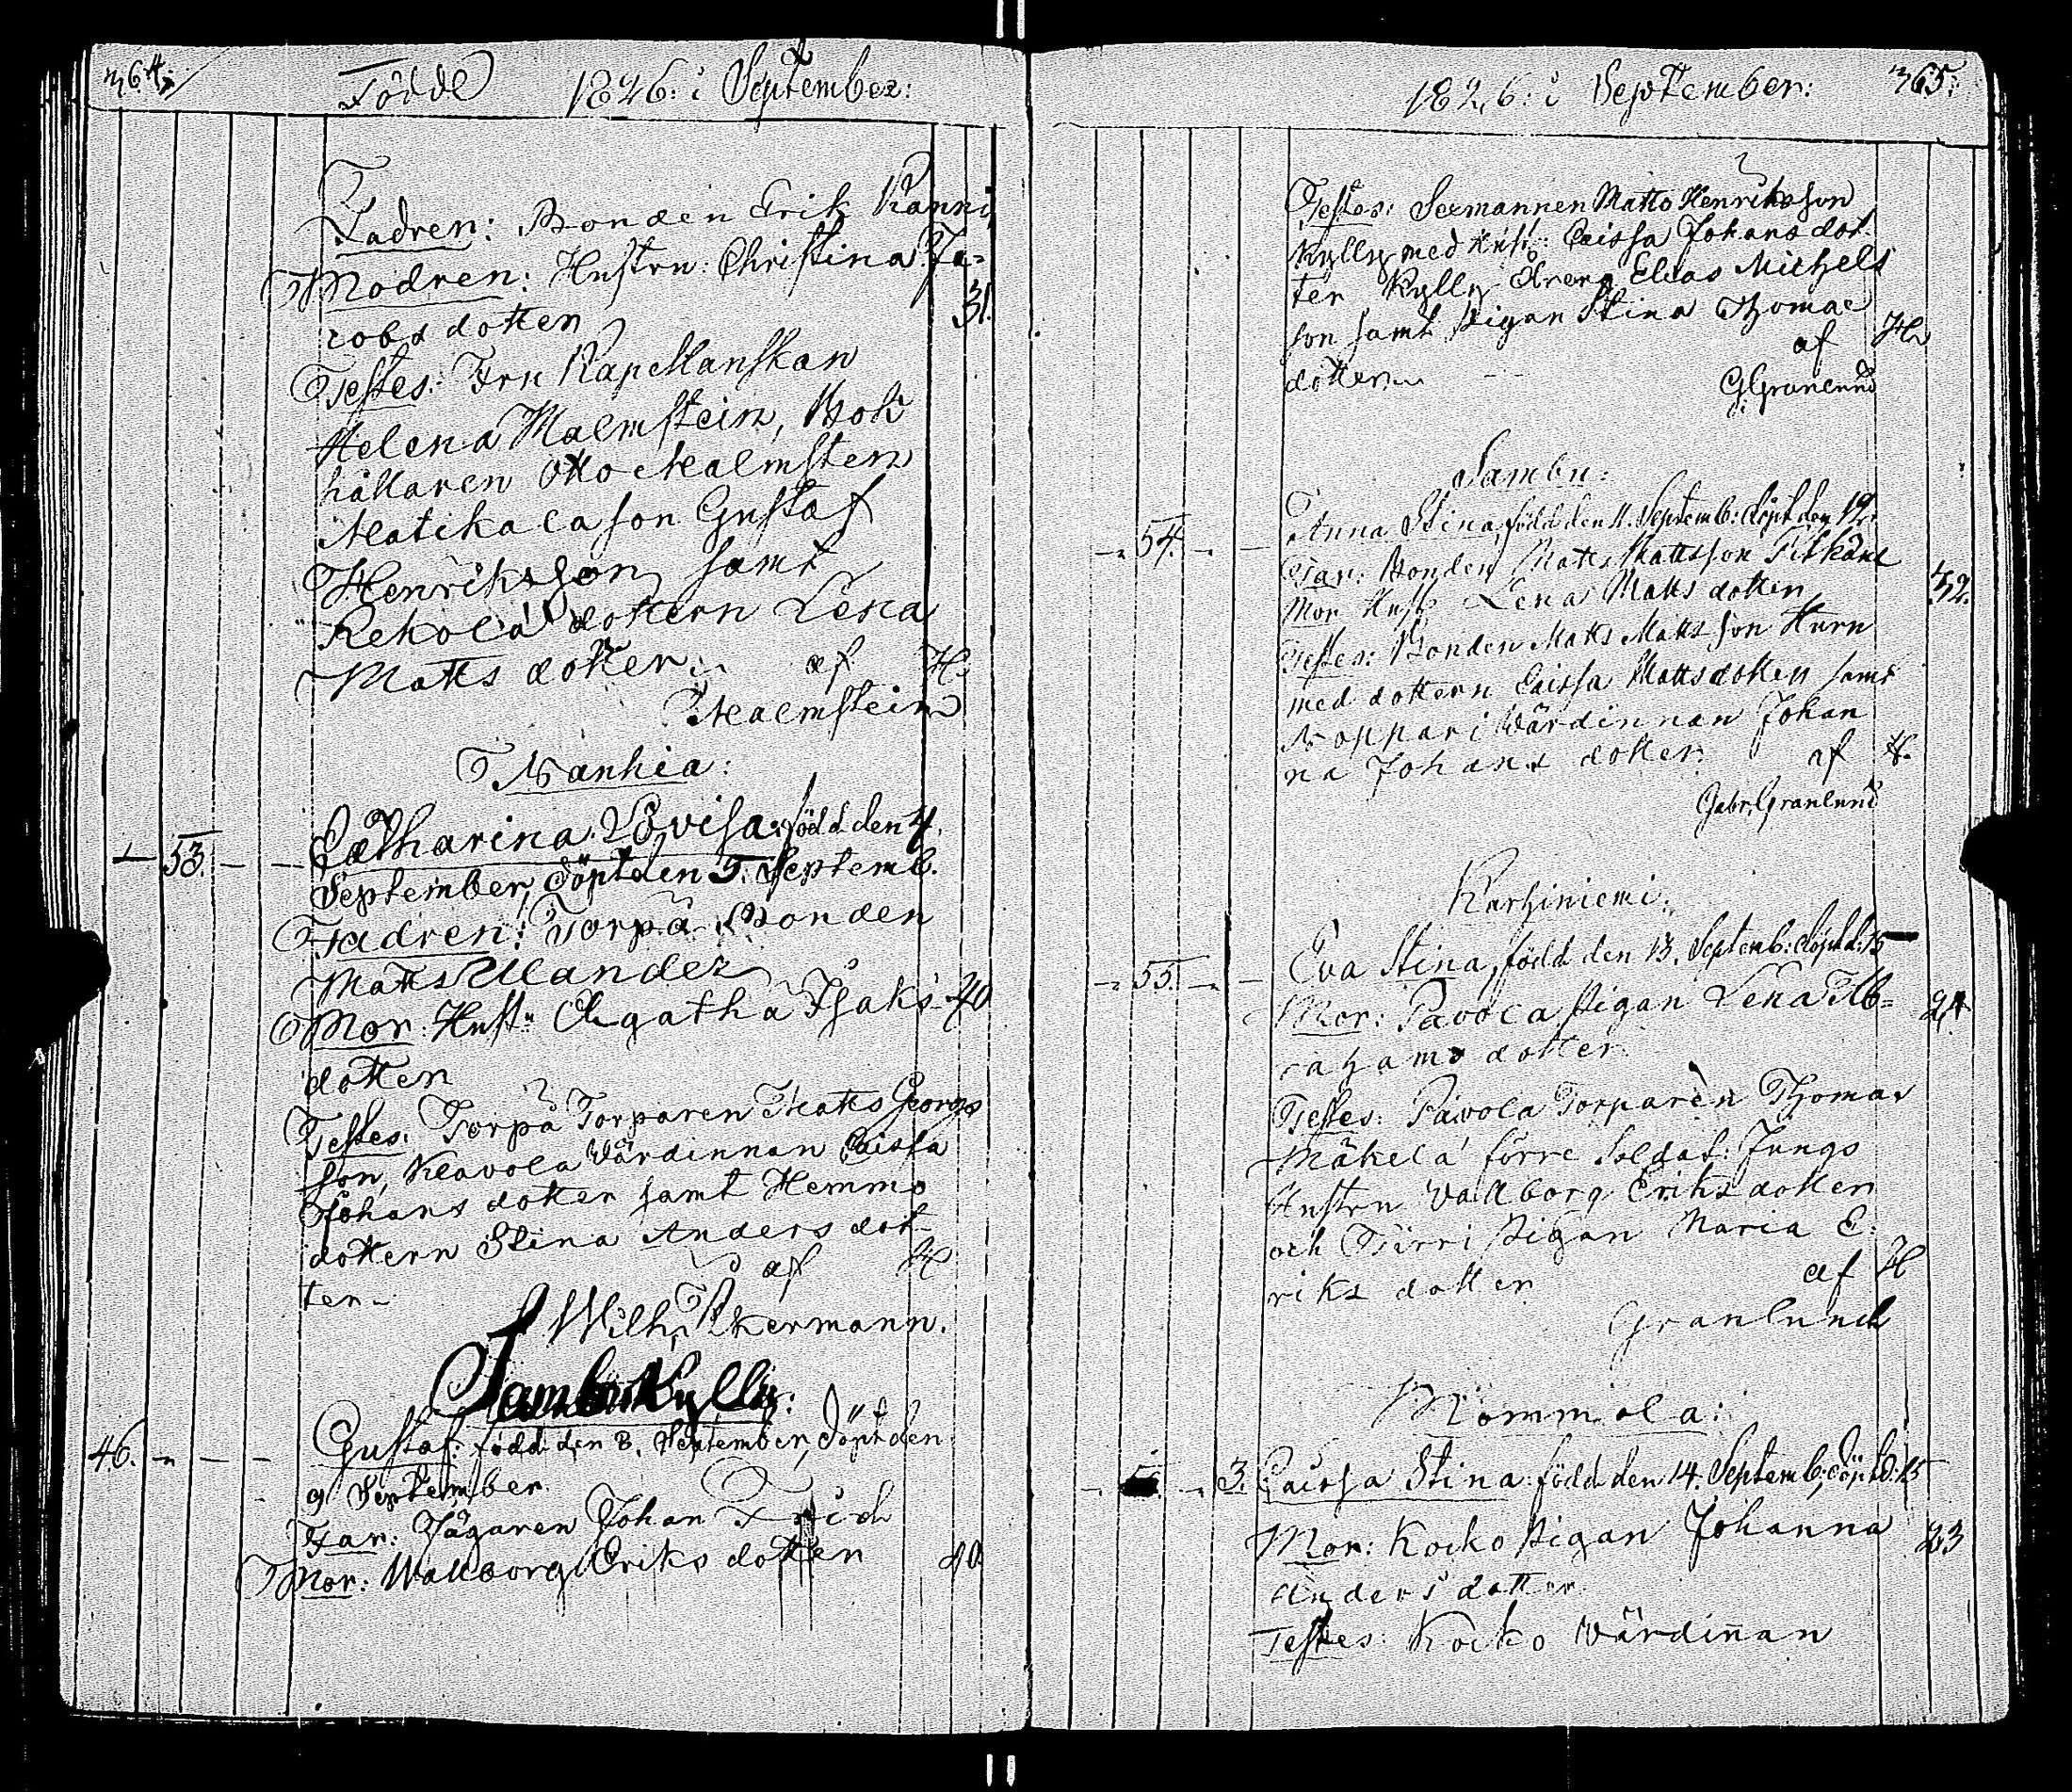 364.
Födde 1826: i September:
Fadren: Bonden Erik Kanni
Modren: Hustru: Christina Ja-
cobs dotter 31.
Testes: Fru Kapellanskan
Helena Malmstein, Bok
hållaren Otto Malmsten
Matikala son Gustaf
Henriksson samt
Rekola dottern Lena
Matts dotter. af H.
Malmstein
Wanhia:
53. Catharina Lovisa: född den 4.
September, döpt den 5. Septemb.
Fadren: Torpa Bonden
Matts Ulander
Mor: Hustr. Agatha Isaks 40
dotter
Testes: Torpa Torparen Matts Georgs
son, Klavola Värdinnan Caissa
Johans dotter samt Hemmo
dottern Stina Anders dot-
ter af H
Wilh. Åkermann.
Sambu Kylly:
46. Gustaf: född den 8. September, döpt den
9 September
Far: Jägaren Johan
Mor: Wallborg Eriks dotter 40.
365.
1826: i September:
Testes: Matts Henriksson
Kylly med Hust: Caissa Johans dot-
ter Kylly dreng Elias Michels
son samt pigan Stina Thomae
dotter af H
G. Granlund
Sambu:
54. Anna Stina, född den 11. Septemb: döpt den 12.
Far: Bonden Matts Mattsson Pitkäne
Mor Hust. Lena Matts dotter 32.
Testes: Bonden Matts Matts son Hurn
med dottern Caissa Matts dotter samt
Noppari Värdinnan Johan
na Johans dotter. af H.
Gabr. Granlund
Karhiniemi:
55. Eva Stina, född den 13. Septemb: döpt d: 15
Mor: Pavola Pigan Lena Ab- 24
rahams dotter
Testes: Pavola Torparen Thomas
Mäkelä förre Soldat: Jungs
Hustru Wallborg Eriks dotter
och Pigan Maria E:
riks dotter af H
Granlund
Mommola:
3. Caissa Stina: född den 14. Septemb: döpt d: 15
Mor: Koiko Pigan Johanna 23
Anders dotter
Testes: Koiko Wärdinnan